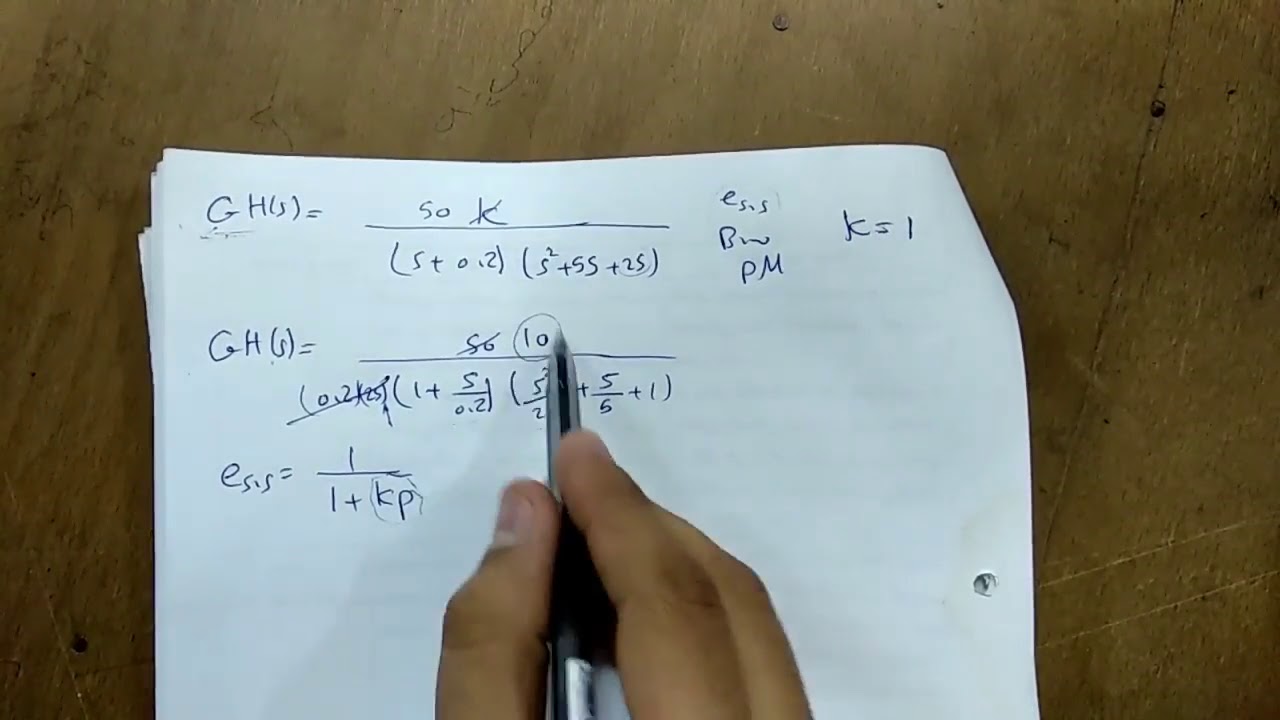 GH(s) = 50 k / (s + 0.2) (s²+5s+25)
es.s
Bw
PM
k = 1
GH(s) = 50 10 / (0.2)(25) (1 + s/0.2) (s²/2 + s/5 + 1)
es.s = 1 / 1 + kp